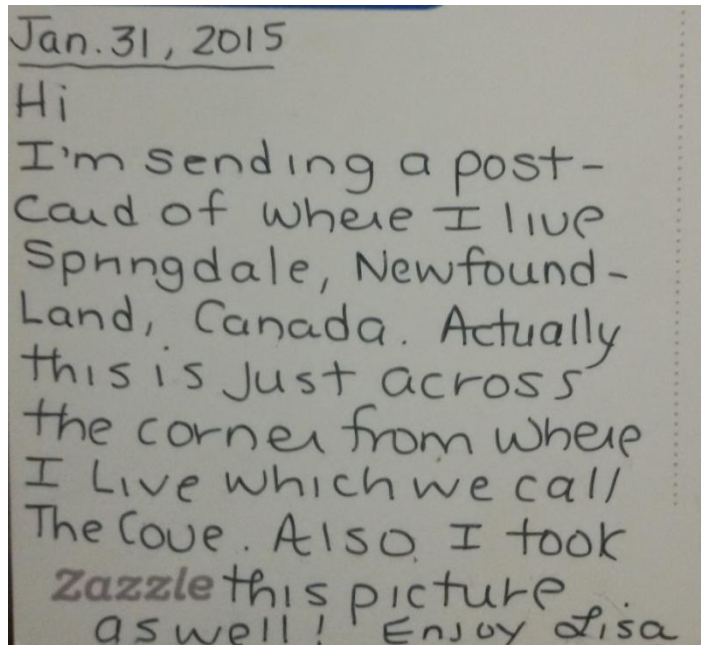 Jan. 31, 2015
Hi
I'm sending a post-
card of where I live
Springdale, Newfound-
Land, Canada. Actually
this is just across
the corner from where
I Live which we call
The Cove. Also I took
Zazzle this picture
as well! Enjoy Lisa